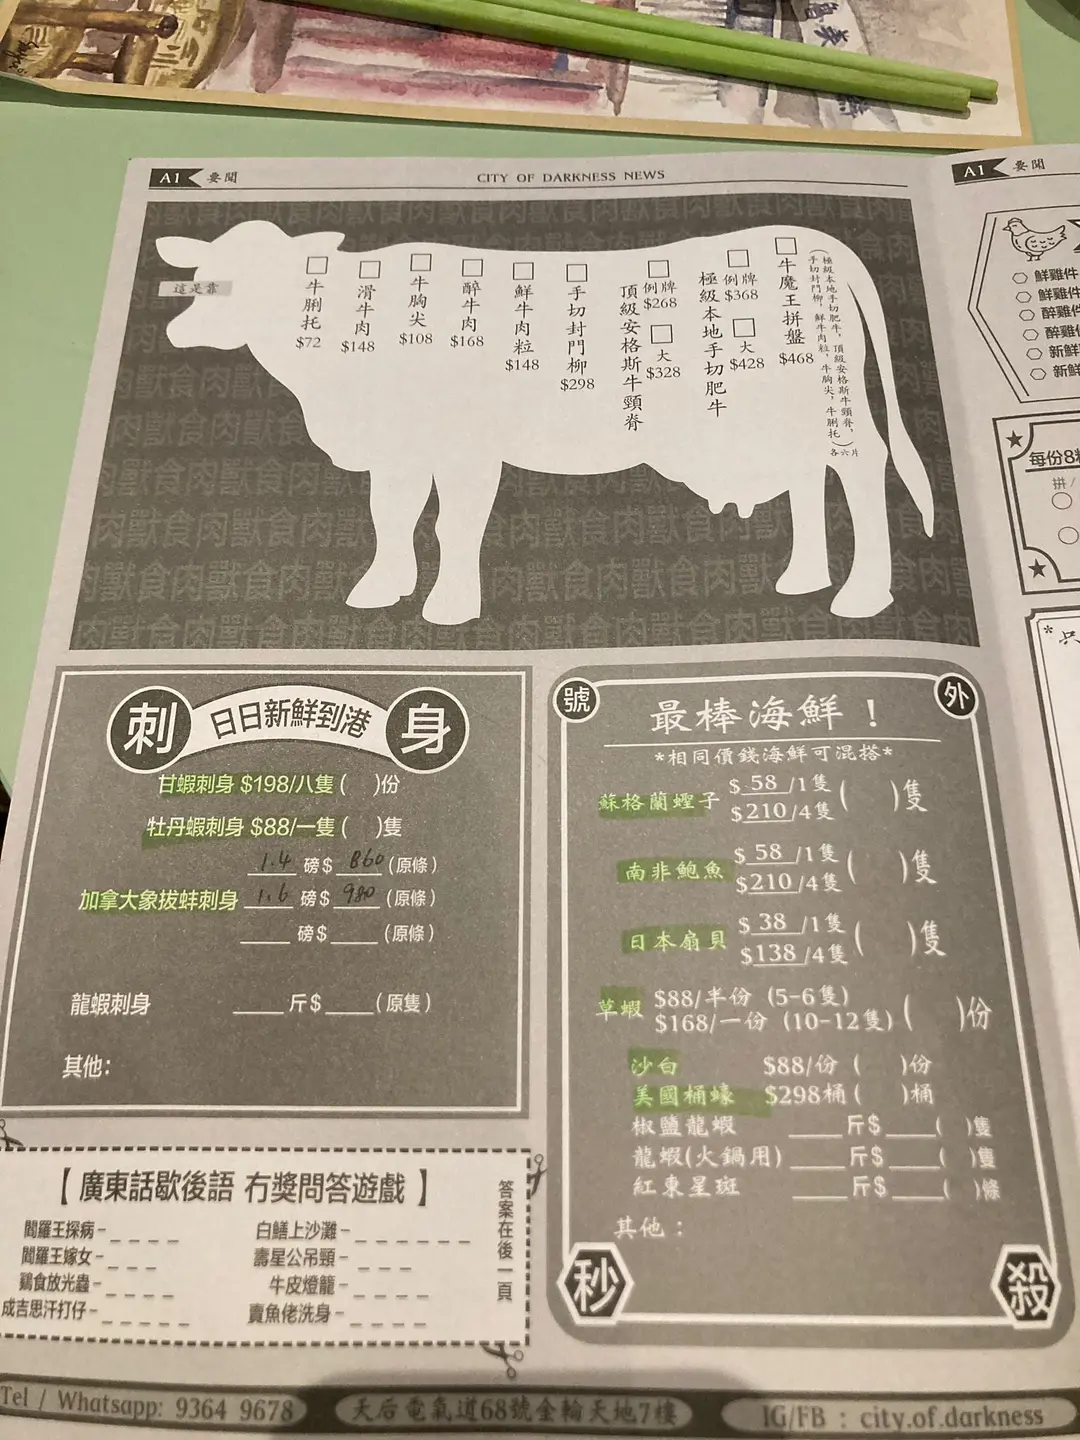 A1 要聞
CITY OF DARKNESS NEWS
A1 要聞
這是靠
牛脷托 $72
滑牛肉 $148
牛胸尖 $108
醉牛肉 $168
鮮牛肉粒 $148
手切封門柳 $298
頂級安格斯牛頸脊
例牌 $268
大 $328
極級本地手切肥牛
例牌 $368
大 $428
牛魔王拼盤 $468
(極級本地手切肥牛，頂級安格斯牛頸脊，
手切封門柳，鮮牛肉粒，牛胸尖，牛脷托)
各六片
刺 日日新鮮到港 身
甘蝦刺身 $198/八隻 ( )份
牡丹蝦刺身 $88/一隻 ( )隻
1.4 磅 $ 860 (原條)
加拿大象拔蚌刺身 1.6 磅 $ 980 (原條)
磅 $ (原條)
龍蝦刺身 斤 $ (原隻)
其他：
號 外
最棒海鮮！
*相同價錢海鮮可混搭*
蘇格蘭蟶子 $ 58 /1隻
$ 210 /4隻 ( )隻
南非鮑魚 $ 58 /1隻
$ 210 /4隻 ( )隻
日本扇貝 $ 38 /1隻
$ 138 /4隻 ( )隻
草蝦 $88/半份 (5-6隻)
$168/一份 (10-12隻) ( )份
沙白 $88/份 ( )份
美國桶蠔 $298桶 ( )桶
椒鹽龍蝦 斤 $ ( )隻
龍蝦(火鍋用) 斤 $ ( )隻
紅東星斑 斤 $ ( )條
其他：
秒 殺
鮮雞件
鮮雞
醉雞件
醉雞
新鮮
新鮮
每份8
拼 /
【 廣東話歇後語 冇獎問答遊戲 】
閻羅王探病- _ _ _ _
閻羅王嫁女- _ _ _
鷄食放光蟲- _ _ _ _
成吉思汗打仔- _ _ _ _ _
白鱔上沙灘- _ _ _ _ _ _
壽星公吊頸- _ _ _
牛皮燈籠- _ _ _ _
賣魚佬洗身- _ _ _ _
答案在後一頁
Tel / Whatsapp: 9364 9678
天后電氣道68號金輪天地7樓
IG/FB : city.of.darkness